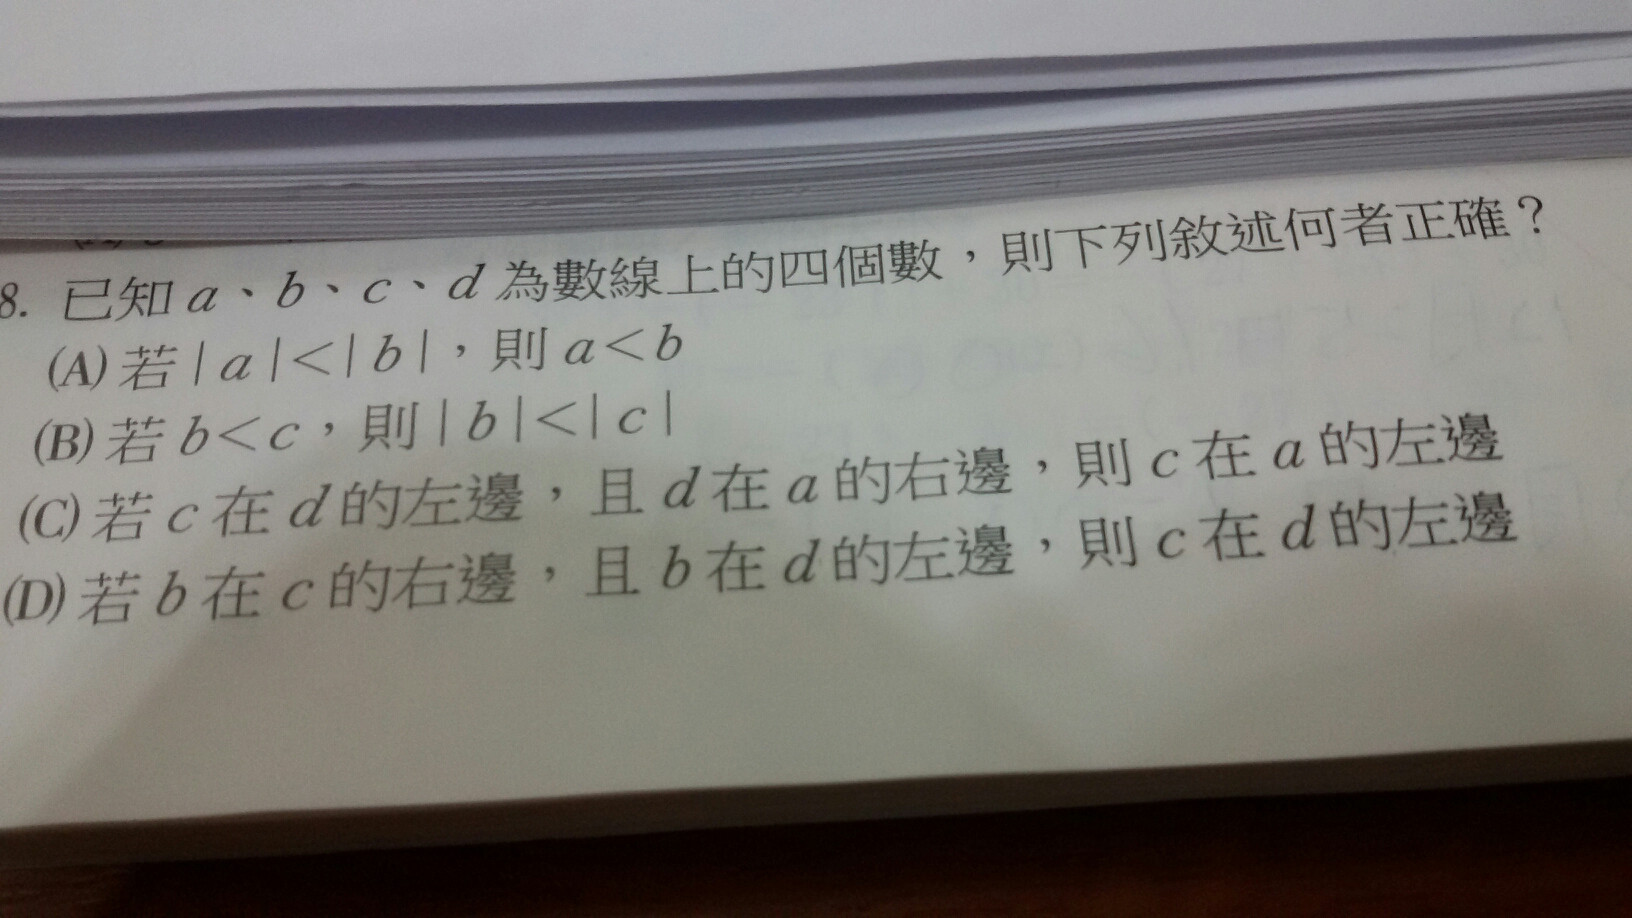 8. 已知 a、b、c、d 為數線上的四個數，則下列敘述何者正確？
(A) 若 | a |<| b |，則 a<b
(B) 若 b<c，則 | b |<| c |
(C) 若 c 在 d 的左邊，且 d 在 a 的右邊，則 c 在 a 的左邊
(D) 若 b 在 c 的右邊，且 b 在 d 的左邊，則 c 在 d 的左邊